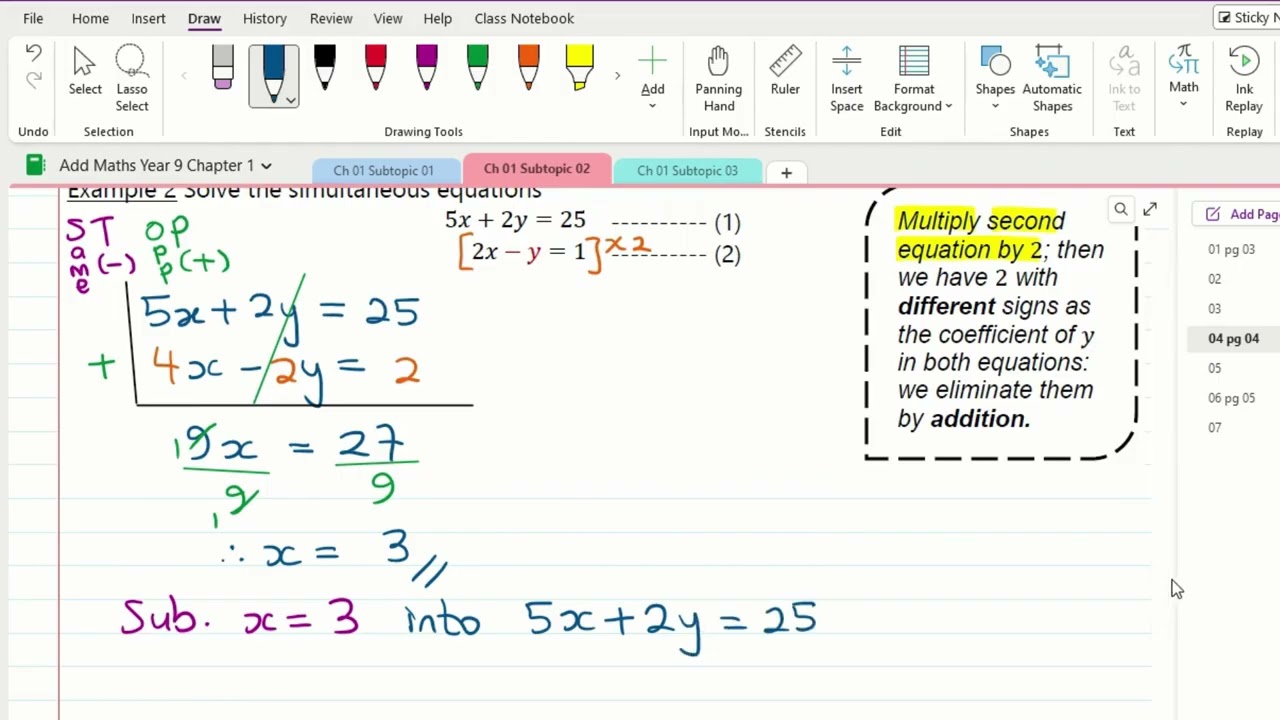 File Home Insert Draw History Review View Help Class Notebook Sticky N
Undo
Select
Lasso Select
Selection
Drawing Tools
Add
Panning Hand
Input Mo...
Ruler
Stencils
Insert Space
Format Background
Edit
Shapes
Automatic Shapes
Shapes
Ink to Text
Text
π
Math
Ink Replay
Replay
Add Maths Year 9 Chapter 1
Ch 01 Subtopic 01
Ch 01 Subtopic 02
Ch 01 Subtopic 03
+
Add Page
01 pg 03
02
03
04 pg 04
05
06 pg 05
07
Example 2 Solve the simultaneous equations
5x + 2y = 25 ---------- (1)
[2x − y = 1] ×2 ---------- (2)
Same (−)
Opp (+)
5x + 2y = 25
+ 4x − 2y = 2
9x = 27
9 9
1
1
∴ x = 3 //
Sub. x = 3 into 5x + 2y = 25
Multiply second
equation by 2; then
we have 2 with
different signs as
the coefficient of y
in both equations:
we eliminate them
by addition.